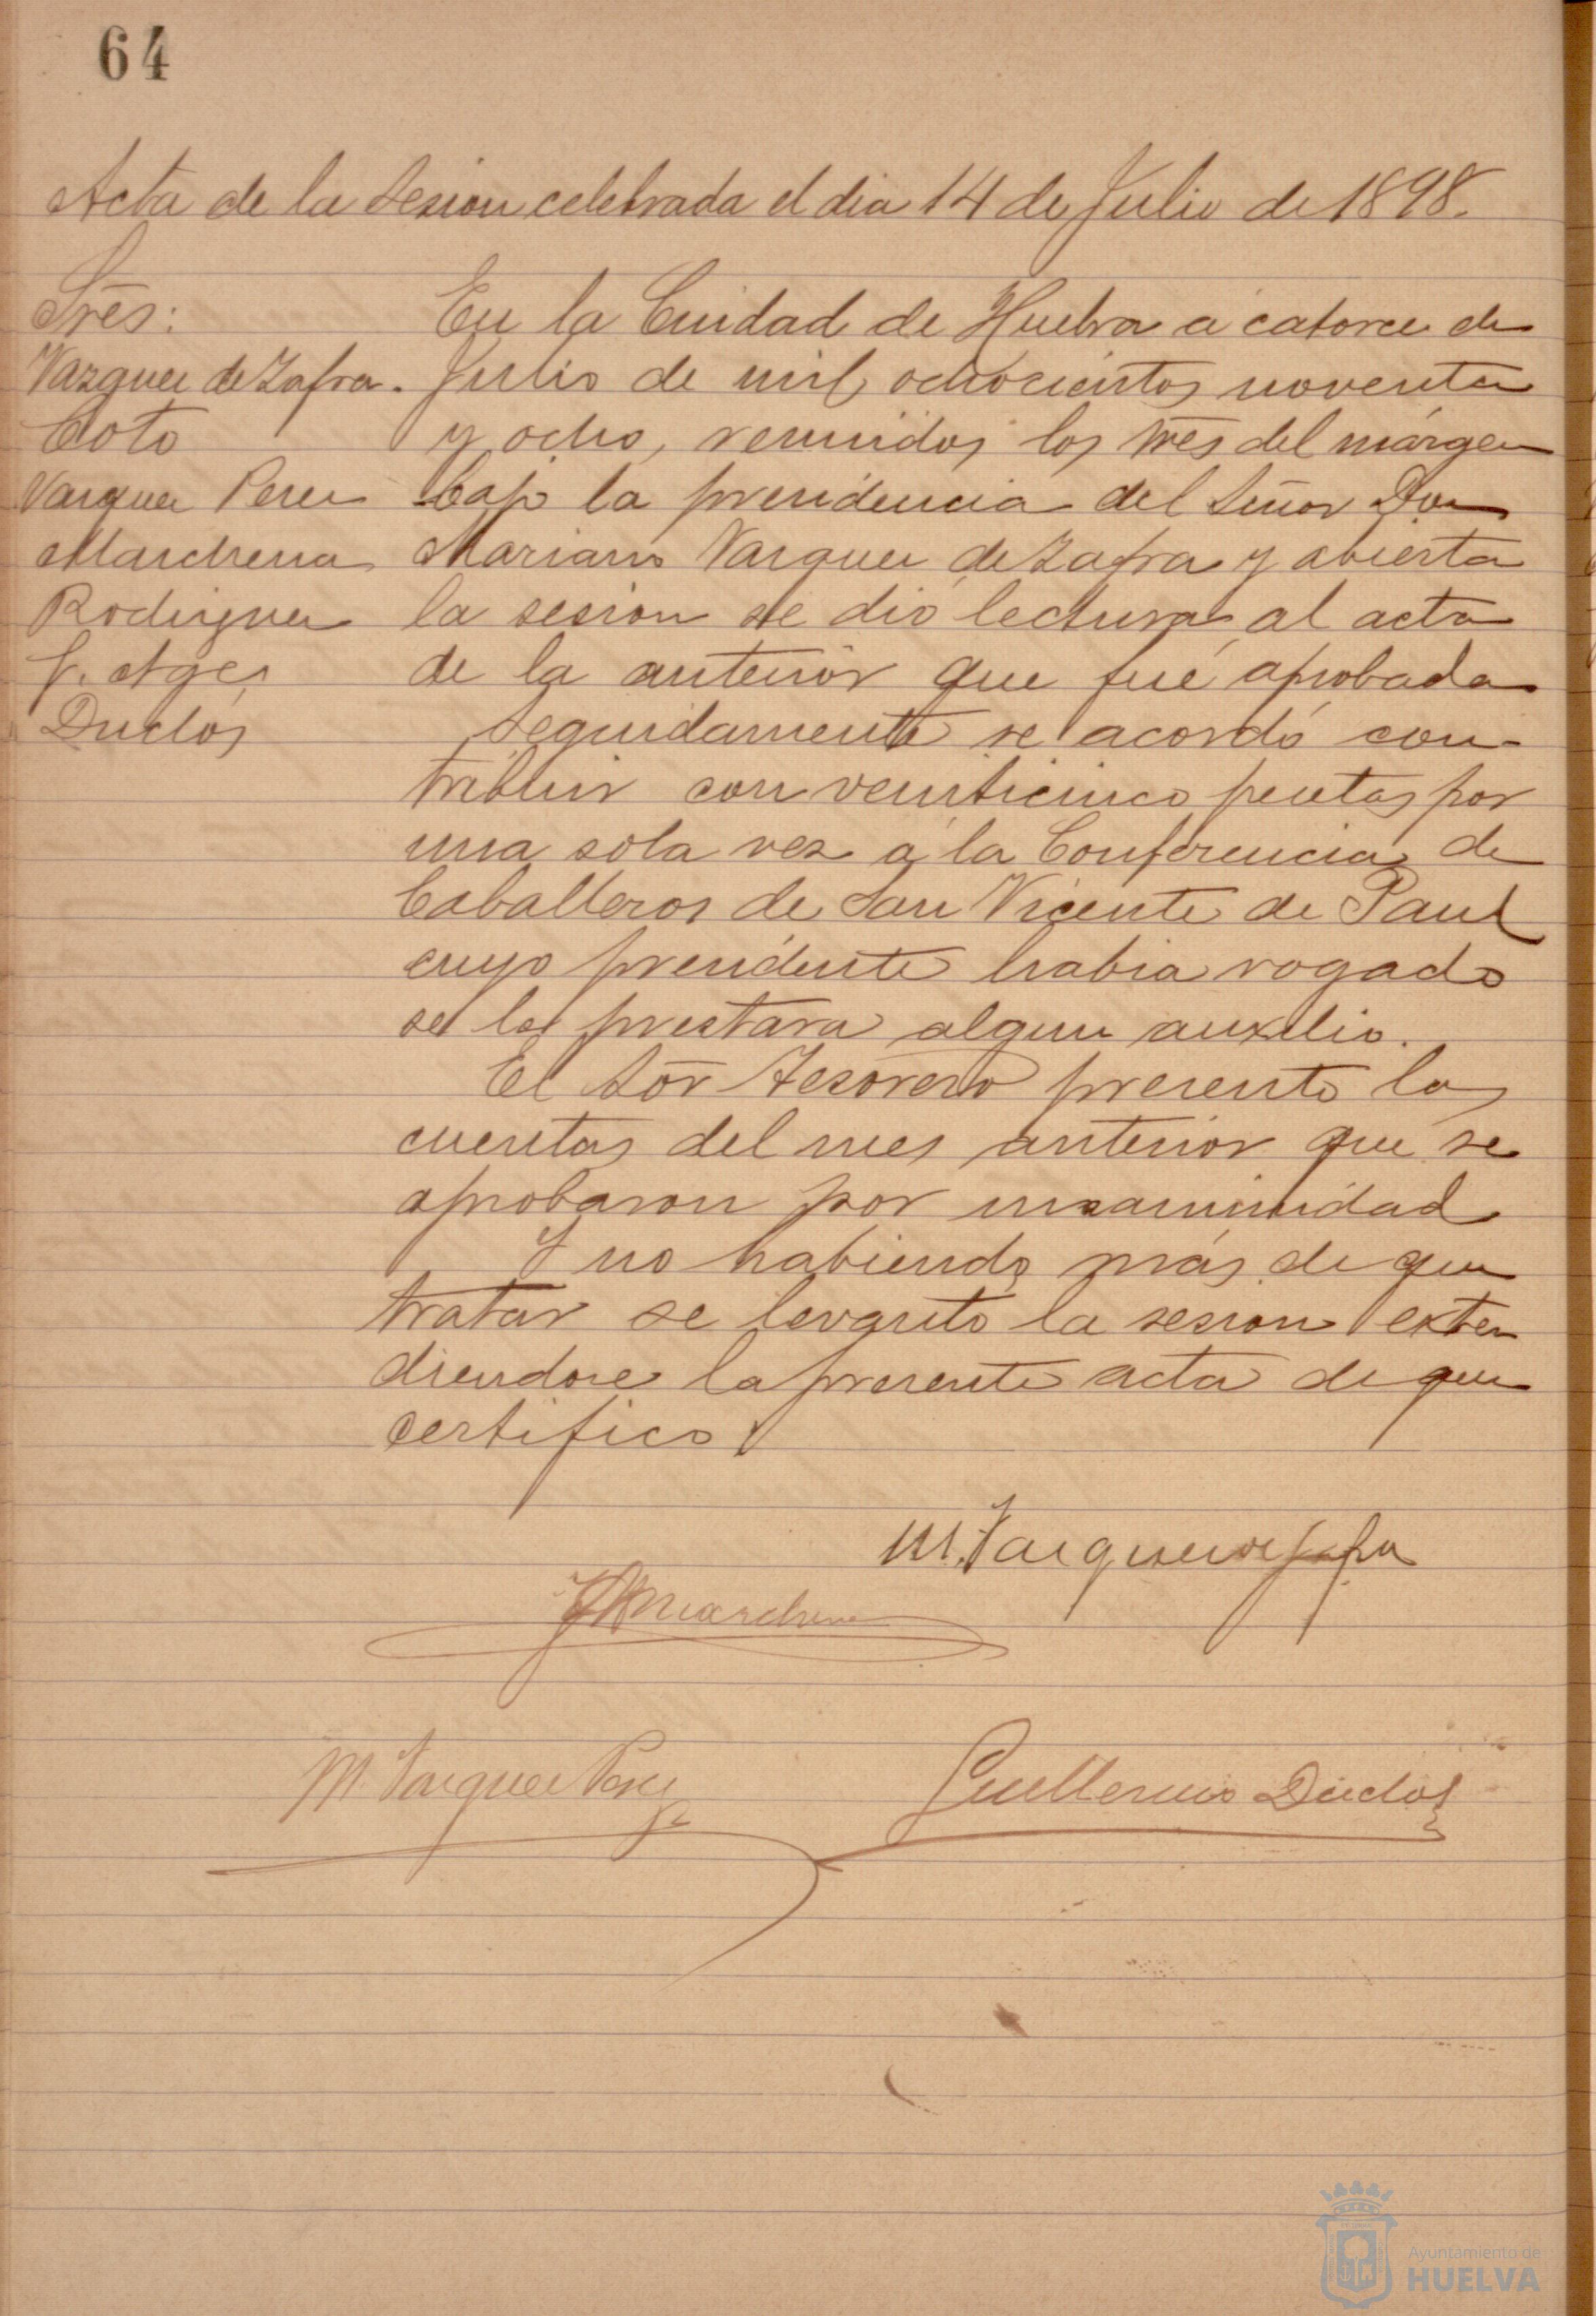 64
Acta de la Sesion celebrada el dia 14 de Julio de 1898.
Srēs:
Vazquez de Zafra.
Coto
Vazquez Perez
Marchena
Rodriguez
Duclós
En la Ciudad de Huelva á catorce de
Julio de mil ochocientos noventa
y ocho, reunidos los srēs del márgen
bajo la presidencia del Señor Don
Mariano Vazquez de Zafra y abierta
la sesion se dió lectura al acta
de la anterior que fué aprobada
Seguidamente se acordó con-
tribuir con veinticinco pesetas por
una sola vez á la Conferencia de
Caballeros de San Vicente de Paul
cuyo presidente habia rogado
se le prestara algun auxilio.
El Sōr Tesorero presentó las
cuentas del mes anterior que se
aprobaron por unanimidad
Y no habiendo más de que
tratar se levantó la sesion exten
diendose la presente acta de que
certifico.
M. Vazquez de Zafra
Marchena
M. Vazquez Perez
Guillermo Duclós
Ayuntamiento de
HUELVA